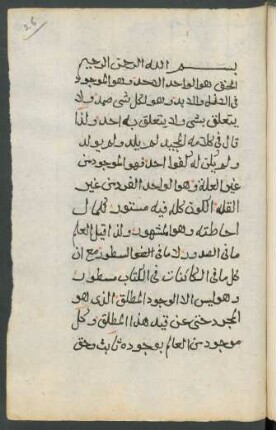 26
بسم الله الرحمن الرحيم
الحق هو الواحد الصمد وهو الموجود
في الازل والابد وهو لكل شي صمد ولا
يتعلق بشي ولا يتعلق به احد ولذا
قال في كلامه المجيد لم يلد ولم يولد
ولم يكن له كفوا احد فهو الموجود من
غير العلة وهو الواحد الفرد من غير
القلة الكون كله فيه مستور كمال
احاطته وهو المشهور ولذا قيل العلم
ما في الصدور لا ما في السطور مع ان
كل ما في الكائنات في الكتاب مسطور
وهو ليس الا الوجود المطلق الذي هو
المجرد حتى عن قيد هذا المطلق وكل
موجود من العالم بوجوده ثابت وحق